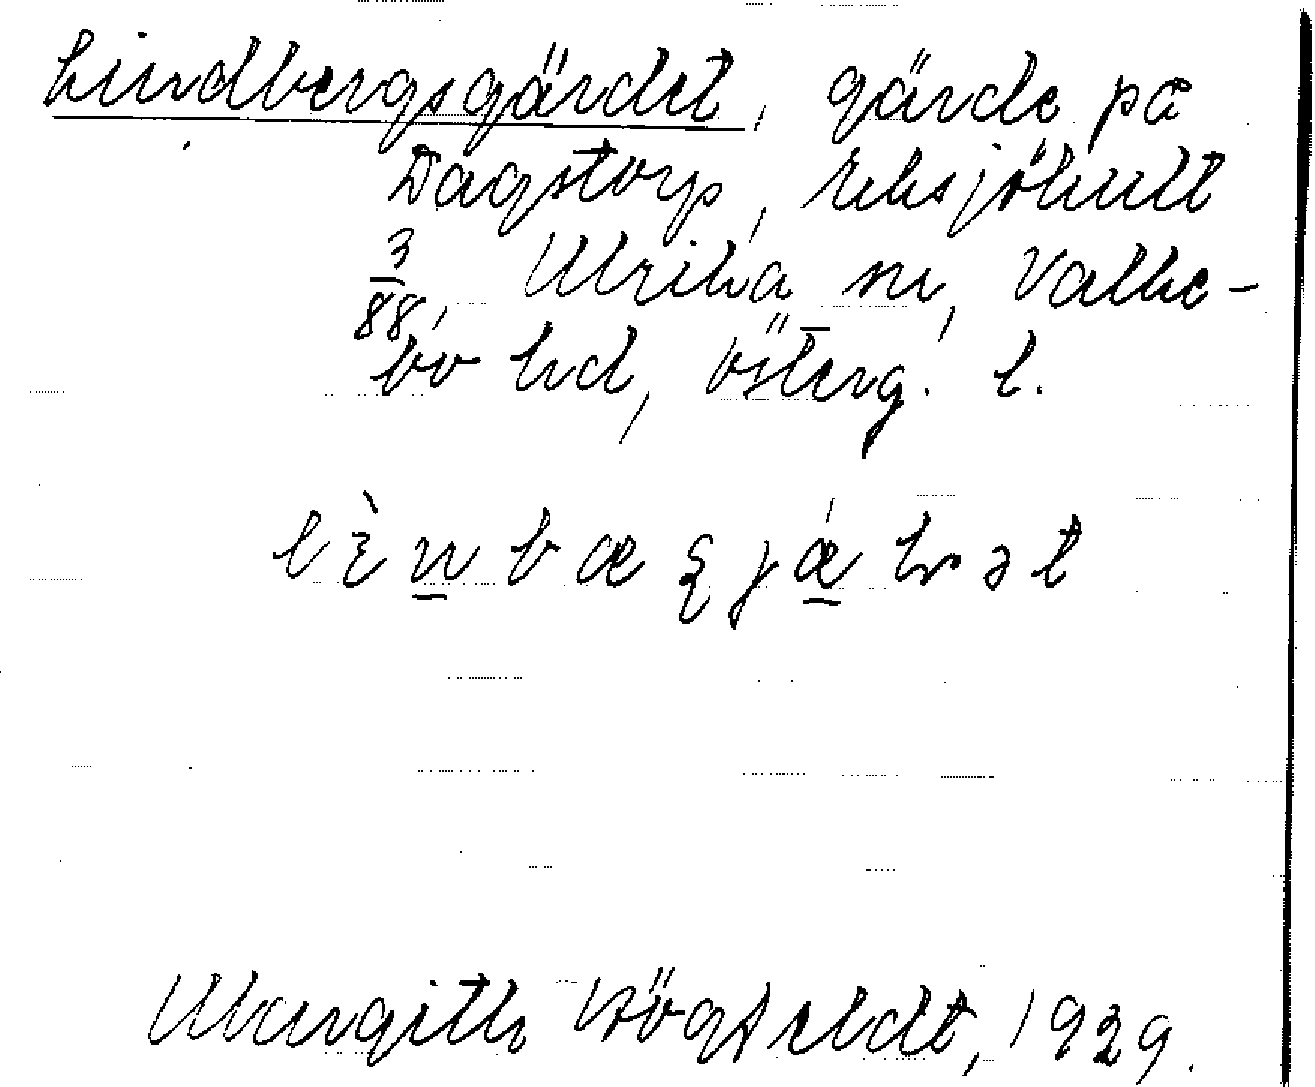 Lindbergsgärdet, gärde på
Dagstorp, Eksjöhult
3/88, Ulrika sn, Valke-
bo hd, Österg. l.
Margith Högfeldt, 1929.